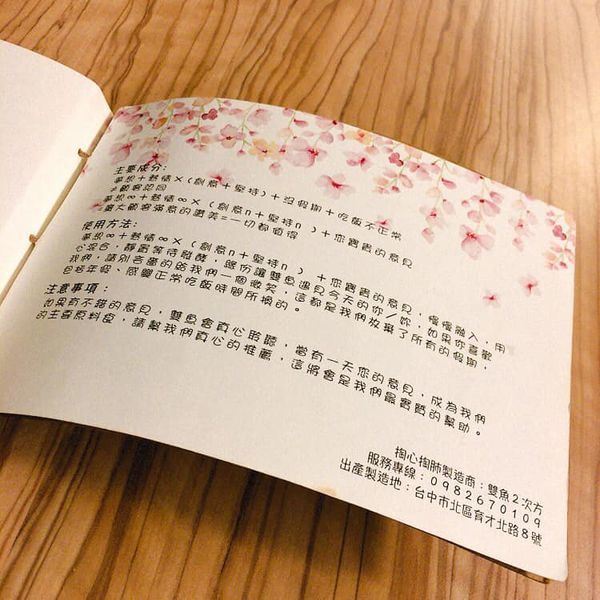 主要成分:
夢想+熱情×(創意+堅持)+沒假期+吃飯不正常
≠顧客認同
夢想∞+熱情∞×(創意n+堅持n )+您寶貴的意見
最大顧客滿意的讚美=一切都值得
使用方法:
夢想∞+熱情∞×(創意n+堅持n )+您寶貴的意見,慢慢融入,用
心混合,靜置等待醱酵,總份讓雙魚遇見今天的你/妳,如果你喜歡
我們,請別吝嗇的給我們一個微笑,這都是我們放棄了所有的假期,
包括年假、感覺正常吃飯時間所換的。
注意事項:
如果有不錯的意見,雙魚會真心聆聽,當有一天您的意見,成為我們
的主菜原料皮,請幫我們真心的推薦,這將會是我們最實質的幫助。
掏心掏肺製造商:雙魚2次方
服務專線:0982670109
出產製造地:台中市北區育才北路8號